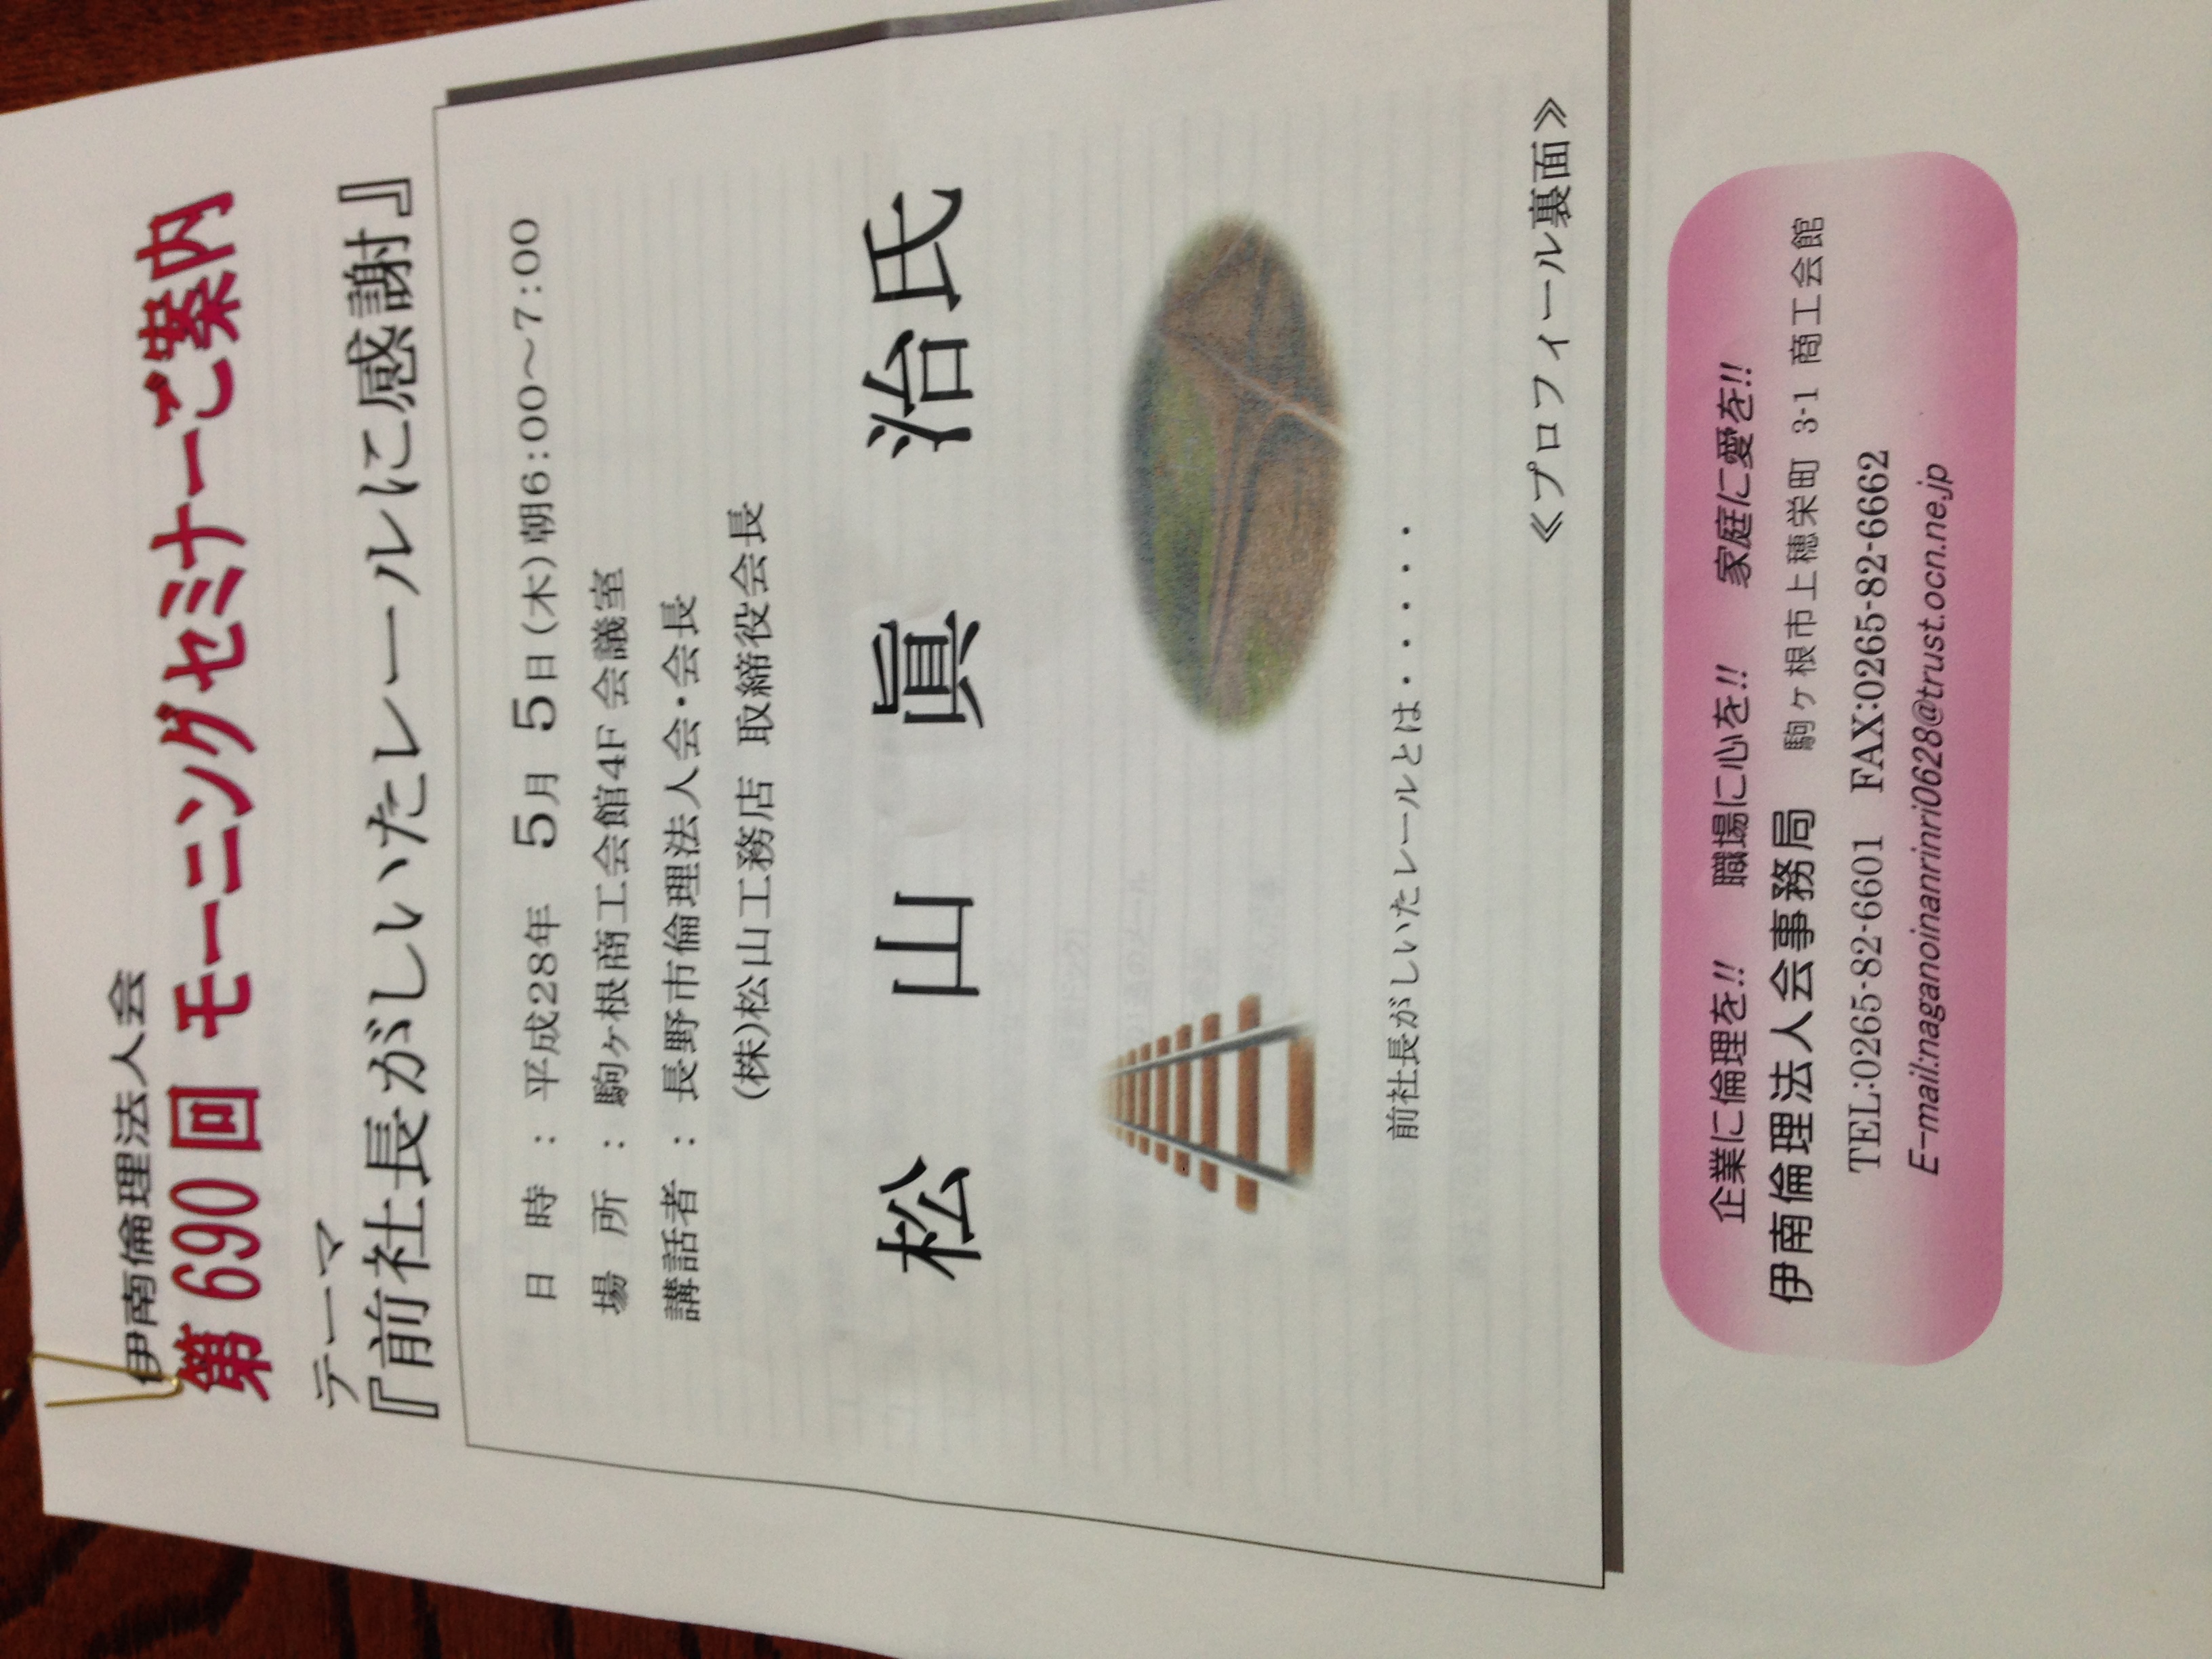 伊南倫理法人会
第 690 回 モーニングセミナーご案内
テーマ
『前社長がしいたレールに感謝』
日 時 : 平成28年 5月 5日(木)朝6:00~7:00
場 所 : 駒ヶ根商工会館4F 会議室
講話者 : 長野市倫理法人会・会長
(株)松山工務店 取締役会長
松 山 眞 治氏
前社長がしいたレールとは・・・・・・・
≪プロフィール裏面≫
企業に倫理を!! 職場に心を!! 家庭に愛を!!
伊南倫理法人会事務局 駒ヶ根市上穂栄町 3-1 商工会館
TEL:0265-82-6601 FAX:0265-82-6662
E-mail:naganoinanrinri0628@trust.ocn.ne.jp